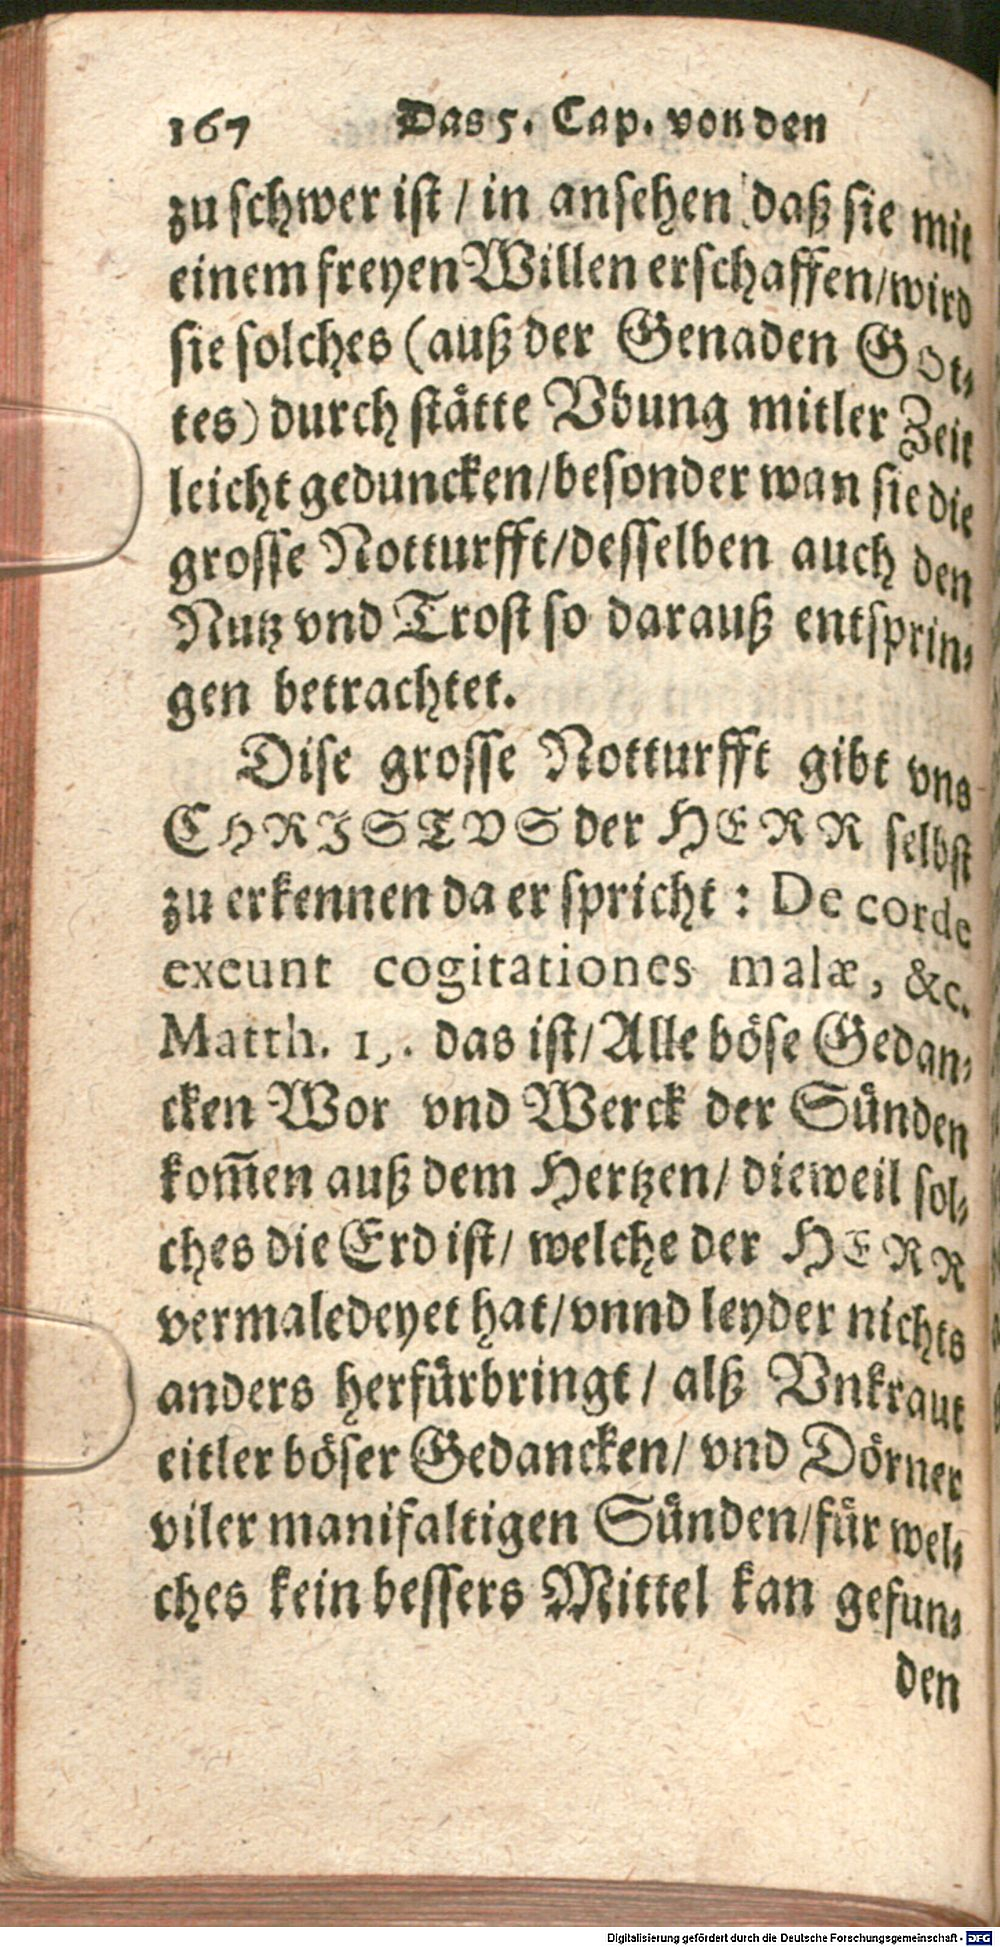 167 Das 5. Cap. von den
zu schwer ist / in ansehen daß sie mit
einem freyen Willen erschaffen / wird
sie solches (auß der Genaden Got⸗
tes) durch stätte Vbung mitler Zeit
leicht geduncken / besonder wan sie die
grosse Notturfft / desselben auch den
Nutz vnd Trost so darauß entsprin⸗
gen betrachtet.
Dise grosse Notturfft gibt vns
CHRISTVS der HERR selbst
zu erkennen da er spricht : De corde
exeunt cogitationes malæ, &c.
Matth. 15. das ist / Alle böse Gedan⸗
cken Wor vnd Werck der Sünden
kom̄en auß dem Hertzen / dieweil sol⸗
ches die Erd ist / welche der HERR
vermaledeyet hat / vnnd leyder nichts
anders herfürbringt / alß Vnkraut
eitler böser Gedancken / vnd Dörner
viler manifaltigen Sünden / für wel⸗
ches kein bessers Mittel kan gefun⸗
den
Digitalisierung gefördert durch die Deutsche Forschungsgemeinschaft - DFG